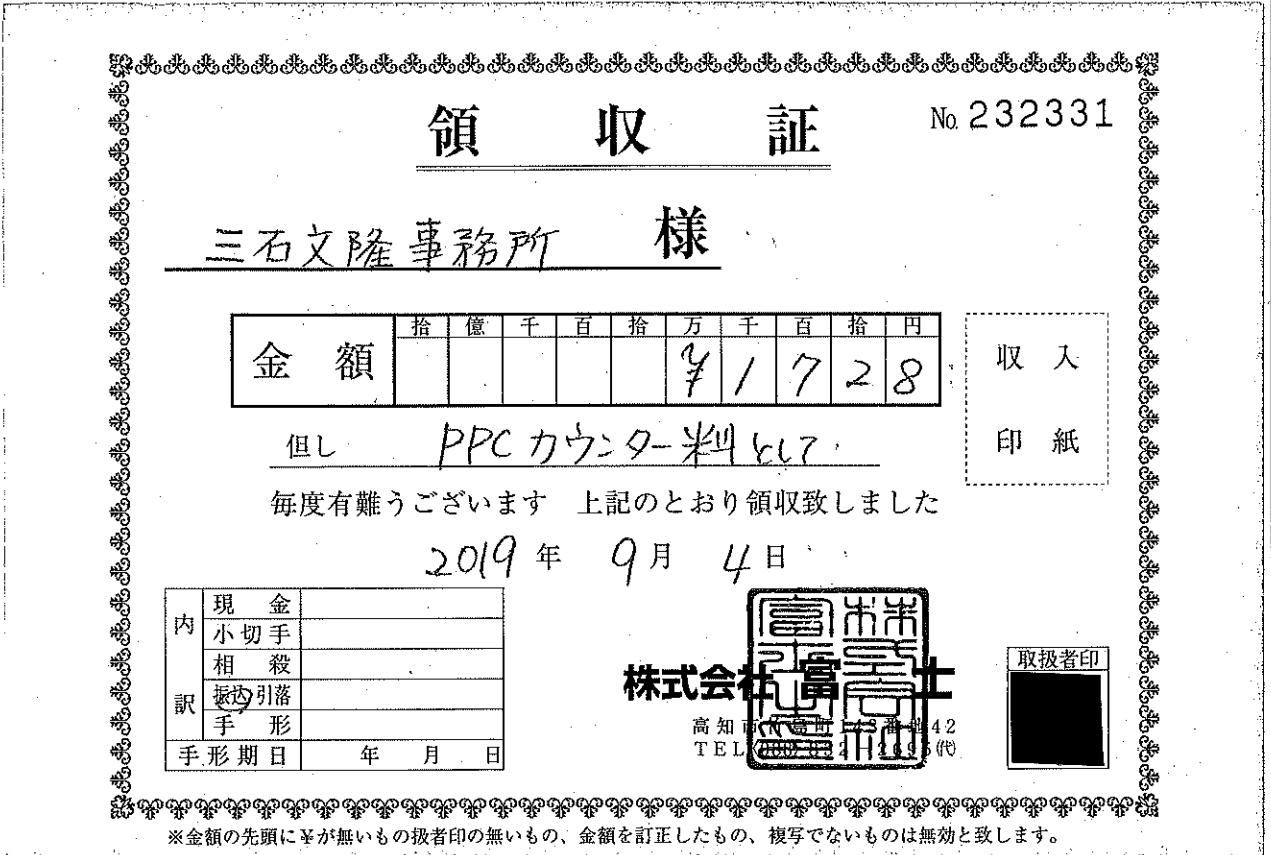 領収証
No. 232331
三石文隆事務所 様
拾 億 千 百 拾 万 千 百 拾 円
金額 ¥1728
収入
印紙
但し PPCカウンター料として
毎度有難うございます 上記のとおり領収致しました
2019年 9月 4日
内訳
現金
小切手
相殺
振込 引落
手形
手形期日 年 月 日
株式会社 富士
取扱者印
高知市
TEL
(代)
※金額の先頭に¥が無いもの扱者印の無いもの、金額を訂正したもの、複写でないものは無効と致します。